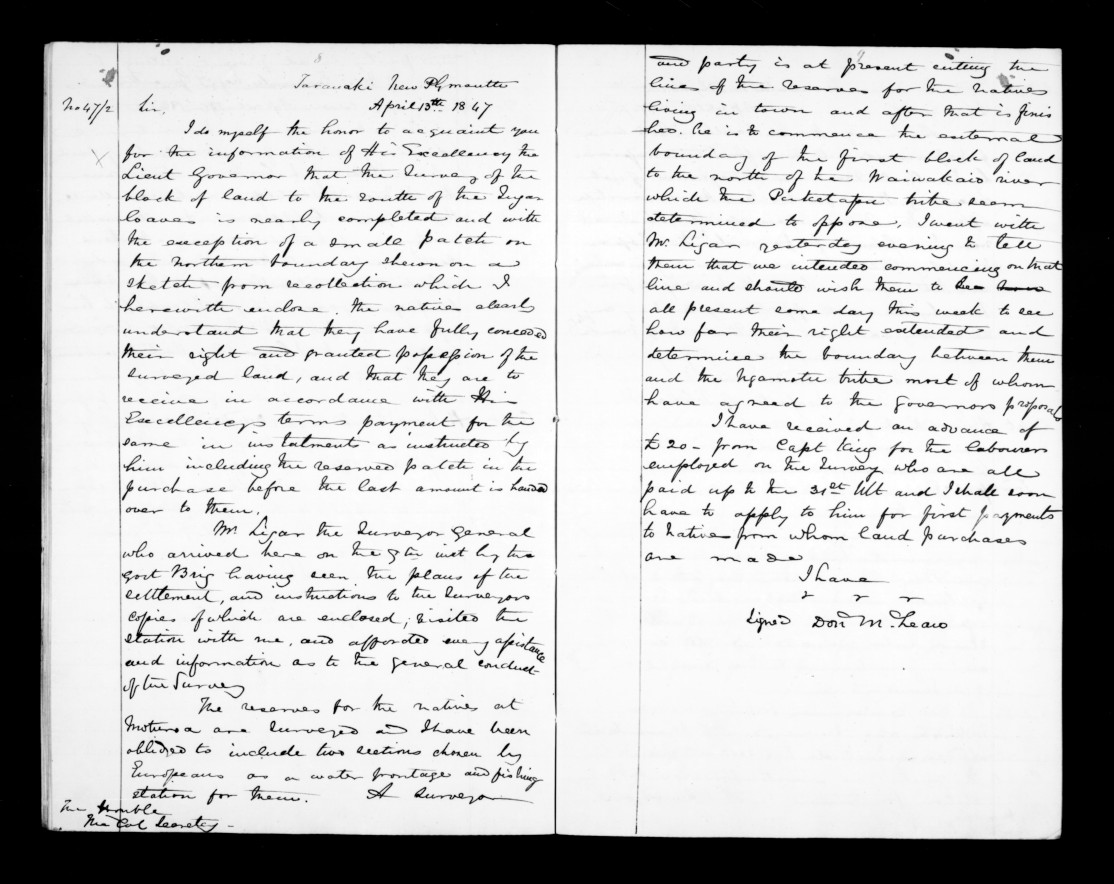 8
Taranaki New Plymouth
April 13th 1847
No 47/2
Sir,
I do myself the honor to acquaint you
for the information of His Excellency the
Lieut Governor that the Survey of the
block of land to the south of the Sugar
loaves is nearly completed and with
the exception of a small patch on
the northern boundary shewn on a
sketch from recollection which I
herewith enclose. The natives clearly
understand that they have fully conceded
their right and granted possession of the
surveyed land, and that they are to
receive in accordance with His
Excellency's terms payment for the
same in instalments as instructed by
him including the reserved patch in the
purchase before the last amount is handed
over to them.
Mr. Ligar the Surveyor General
who arrived here on the 9th inst by the
Govt Brig having seen the plans of the
settlement, and instructions to the Surveyors
copies of which are enclosed; visited the
station with me, and afforded every assistance
and information as to the general conduct
of the Survey
The reserves for the natives at
Moturoa are surveyed and I have been
obliged to include two sections chosen by
Europeans as a water frontage and fishing
station for them. A surveyor
The Honble
The Col Secretary -
9
and party is at present cutting the
lines of the reserves for the natives
living in town and after that is finis
hed. he is to commence the external
boundary of the first block of land
to the north of the Waiwakaio river
which the Puketapu tribe seem
determined to oppose, I went with
Mr. Ligar yesterday evening to tell
them that we intended commencing on that
line and should wish them to
all present some day this week to see
how far their right extended and
determine the boundary between them
and the Ngamotu tribe most of whom
have agreed to the Governors proposals
I have received an advance of
£20 - from Capt King for the labourers
employed on the Survey who are all
paid up to the 31st Ult and I shall soon
have to apply to him for first payments
to natives from whom land purchases
are made
I have
Signed Don. McLean